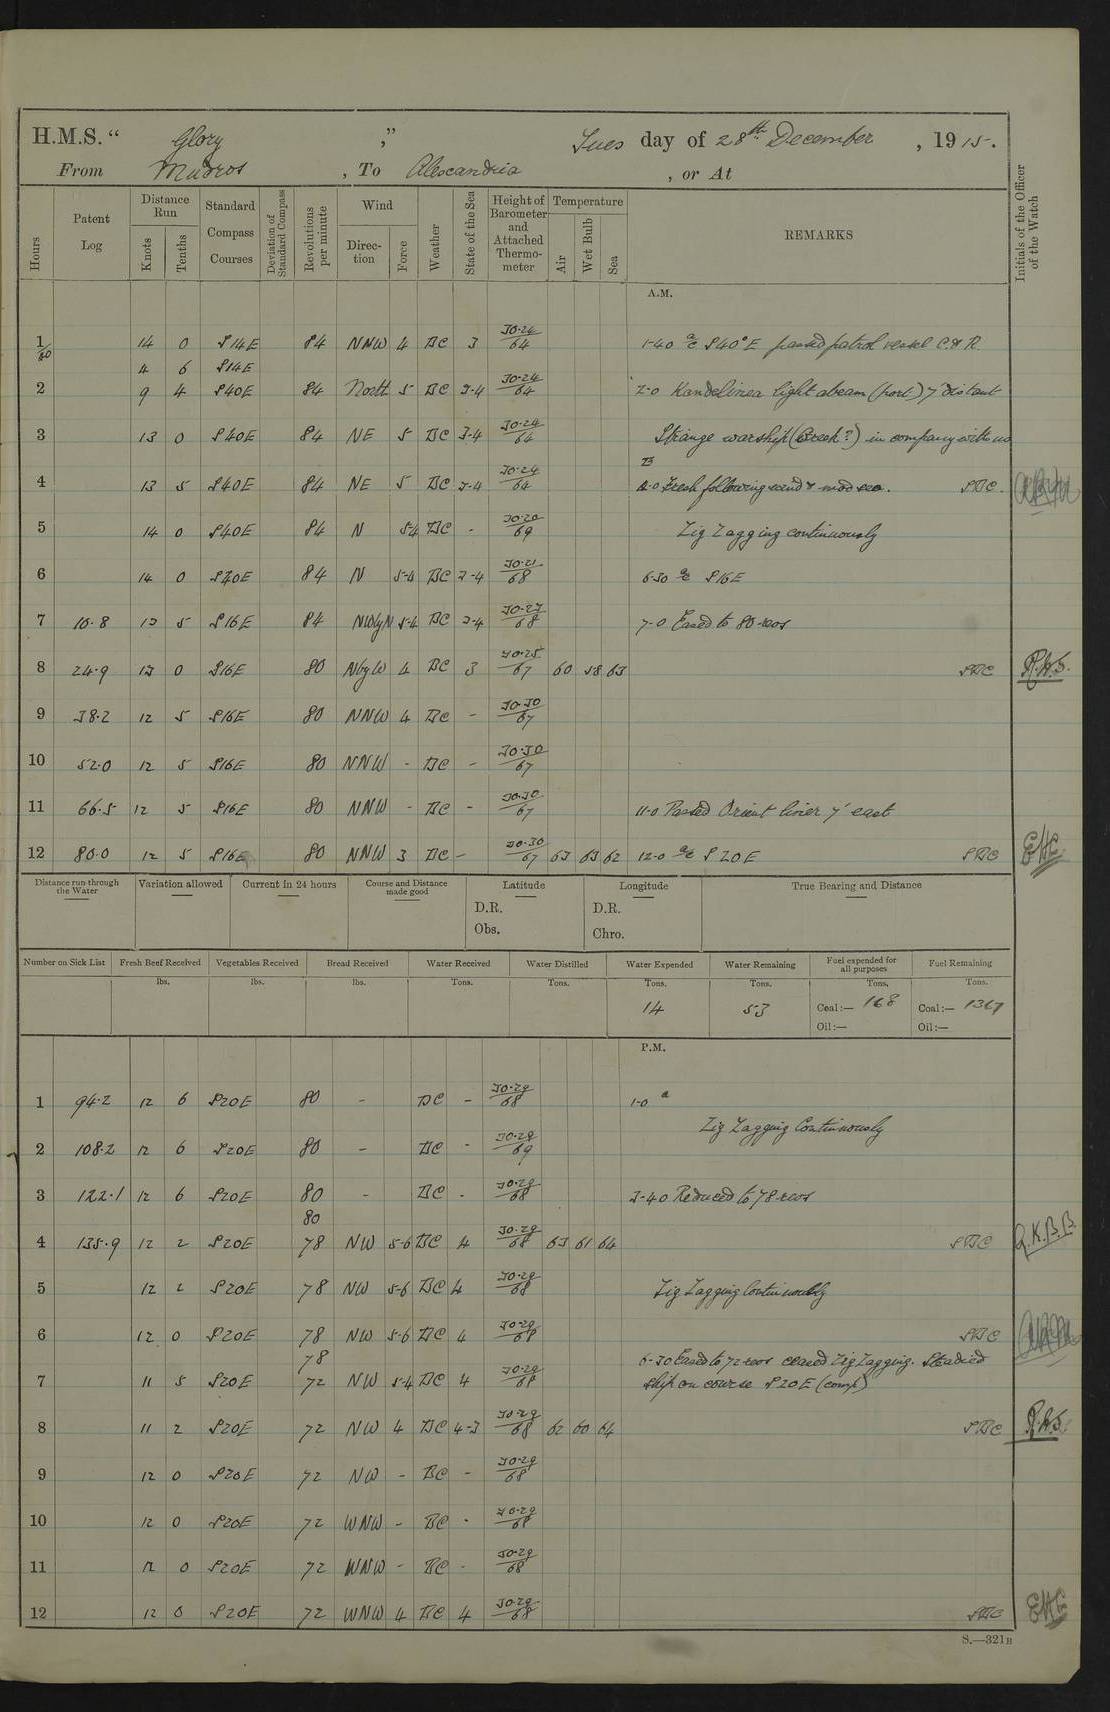 H.M.S. " Glory " Tues day of 28th December, 1915.
From Mudros, To Alexandria, or At
Hours Patent Log Distance Run Knots Tenths Standard Compass Courses Deviation of Standard Compass Revolutions per minute Wind Direction Force Weather State of the Sea Height of Barometer and Attached Thermometer Temperature Air Wet Bulb Sea REMARKS Initials of the Officer of the Watch
A.M.
1 14 0 S14E 84 NNW 4 BC 3 30.24/64 1-40 a/c S40°E passed patrol vessel
4 6 S14E
2 9 4 S40E 84 North 5 BC 3-4 30.24/64 2-0 Kandelinea light abeam (port) 7' distant
3 13 0 S40E 84 NE 5 BC 3-4 30.24/64 Strange warship (Greek?) in company with us
4 13 5 S40E 84 NE 5 BC 3-4 30.24/64 4-0 Fresh following wind & mod sea. SBC.
5 14 0 S40E 84 N 5-4 BC - 30.20/69 Zig Zagging continuously
6 14 0 S40E 84 N 5-4 BC 3-4 30.21/68 6-30 a/c S16E
7 10.8 13 5 S16E 84 5-4 BC 3-4 30.27/68 7-0 Eased to 80 revs
8 24.9 13 0 S16E 80 NbyW 4 BC 3 30.25/67 60 58 63 SBC R.W.S.
9 38.2 12 5 S16E 80 NNW 4 BC - 30.30/67
10 52.0 12 5 S16E 80 NNW - BC - 30.30/67
11 66.5 12 5 S16E 80 NNW - BC - 30.30/67 11-0 Passed Orient liner 7' east
12 80.0 12 5 S16E 80 NNW 3 BC - 30.30/67 63 63 62 12-0 a/c S20E SBC
Distance run through the Water Variation allowed Current in 24 hours Course and Distance made good Latitude Longitude True Bearing and Distance
D.R. D.R.
Obs. Chro.
Number on Sick List Fresh Beef Received Vegetables Received Bread Received Water Received Water Distilled Water Expended Water Remaining Fuel expended for all purposes Fuel Remaining
lbs. lbs. lbs. Tons. Tons. Tons. Tons. Tons. Tons.
14 53 Coal:— 168 Coal:— 1367
Oil:— Oil:—
P.M.
1 94.2 12 6 S20E 80 - BC - 30.29/68 1-0
Zig Zagging Continuously
2 108.2 12 6 S20E 80 - BC - 30.29/69
3 122.1 12 6 S20E 80 - BC - 30.29/68 3-40 Reduced to 78 revs
80
4 135.9 12 2 S20E 78 NW 5-6 BC 4 30.29/68 63 61 64 SBC R.K.B.B.
5 12 2 S20E 78 NW 5-6 BC 4 30.29/68 Zig Zagging Continuously
6 12 0 S20E 78 NW 5-6 BC 4 30.29/68 SBC
78 6-30 Eased to 72 revs ceased Zig Zagging. Steadied
7 11 5 S20E 72 NW 5-4 BC 4 30.29/68 ship on course S20E (comp)
8 11 2 S20E 72 NW 4 BC 4-3 30.29/68 62 60 64 SBC R.W.S.
9 12 0 S20E 72 NW - BC - 30.29/68
10 12 0 S20E 72 WNW - BC - 30.29/68
11 12 0 S20E 72 WNW - BC - 30.29/68
12 12 0 S20E 72 WNW 4 BC 4 30.29/68 SBC
S.—321B